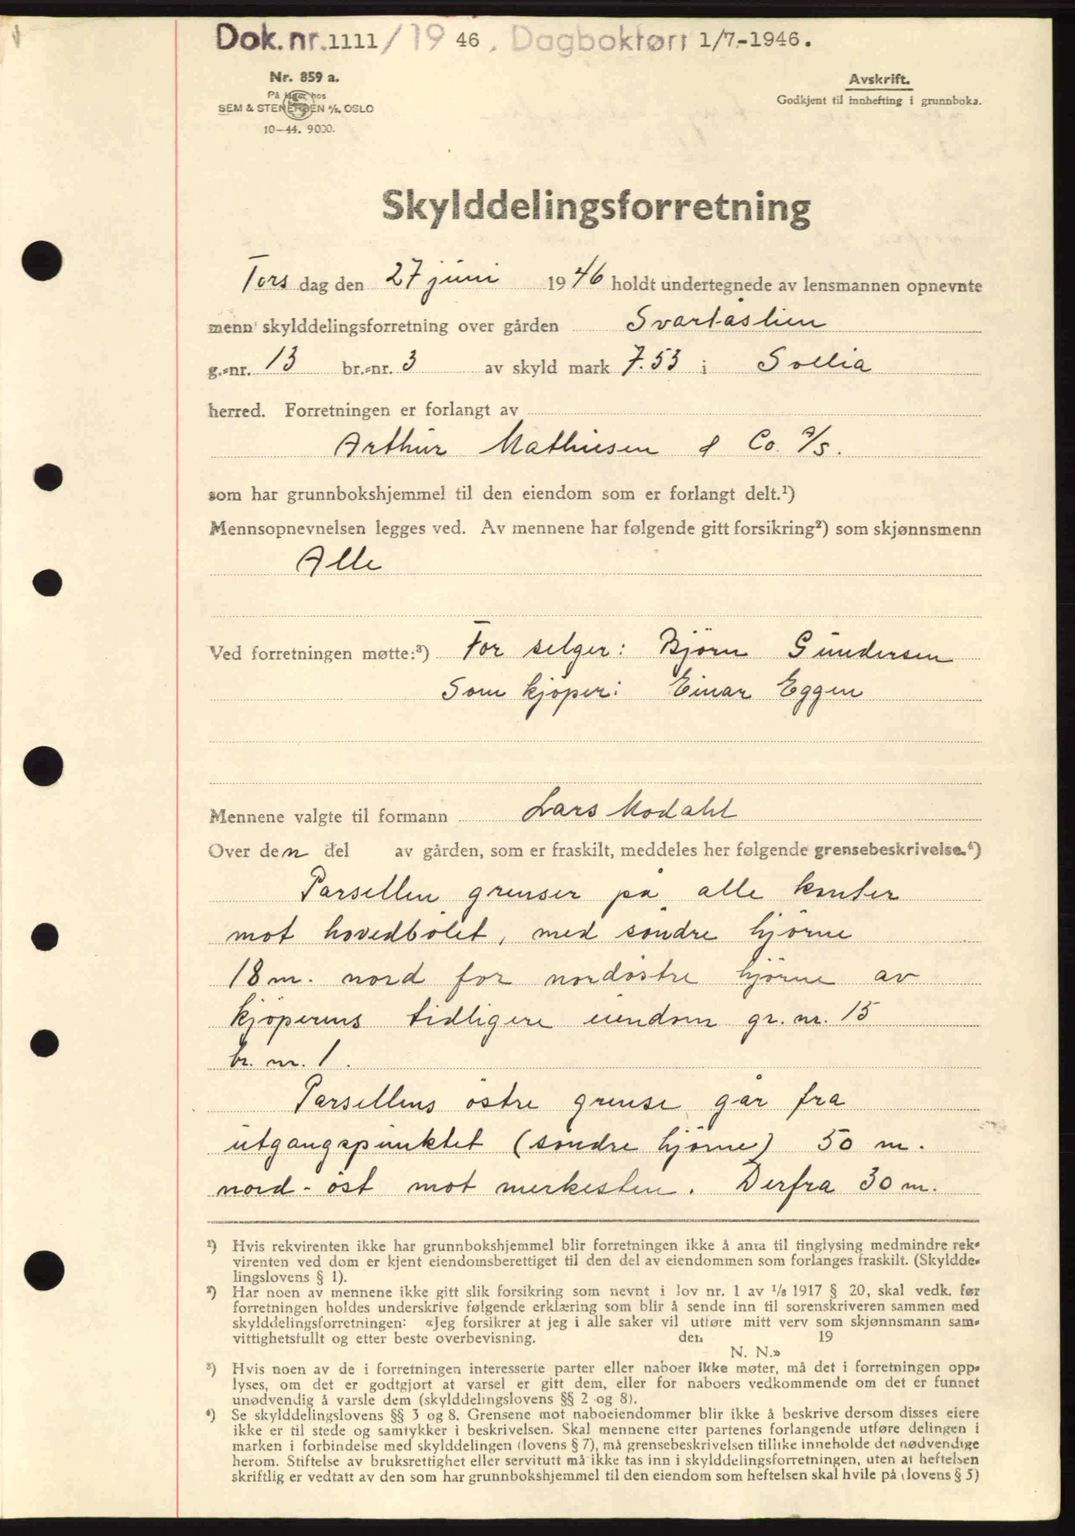 Dok. nr. 1111 / 19 46 , Dagbokført 1/7.-1946.
Nr. 859 a.
På lager hos
SEM & STENERSEN A/S, OSLO
10-44. 9000.
Avskrift.
Godkjent til innhefting i grunnboka.
Skylddelingsforretning
Tors dag den 27 juni 19 46 holdt undertegnede av lensmannen opnevnte
menn skylddelingsforretning over gården Svartåslien
g.-nr. 13 br.-nr. 3 av skyld mark 7.53 i Sollia
herred. Forretningen er forlangt av
Arthur Mathiesen & Co. A/S.
som har grunnbokshjemmel til den eiendom som er forlangt delt.¹)
Mennsopnevnelsen legges ved. Av mennene har følgende gitt forsikring²) som skjønnsmenn
Alle
Ved forretningen møtte:³) For selger: Björn Gundersen
Som kjöper: Einar Eggen
Mennene valgte til formann Lars Modahl
Over den del av gården, som er fraskilt, meddeles her følgende grensebeskrivelse.⁴)
Parsellen grenser på alle kanter
mot hovedbölet, med söndre hjörne
18 m. nord for nordöstre hjörne av
kjöperens tidligere eiendom gr. nr. 15
br. nr. 1.
Parsellens östre grense går fra
utgangspunktet (söndre hjörne) 50 m.
nord-öst mot merkesten. Derfra 30 m.
¹) Hvis rekvirenten ikke har grunnbokshjemmel blir forretningen ikke å anta til tinglysing medmindre rek-
virenten ved dom er kjent eiendomsberettiget til den del av eiendommen som forlanges fraskilt. (Skyldde-
lingslovens § 1).
²) Har noen av mennene ikke gitt slik forsikring som nevnt i lov nr. 1 av 1/6 1917 § 20, skal vedk. før
forretningen holdes underskrive følgende erklæring som blir å sende inn til sorenskriveren sammen med
skylddelingsforretningen: «Jeg forsikrer at jeg i alle saker vil utføre mitt verv som skjønnsmann sam-
vittighetsfullt og etter beste overbevisning. den 19
N. N.»
³) Hvis noen av de i forretningen interesserte parter eller naboer ikke møter, må det i forretningen opp-
lyses, om det er godtgjort at varsel er gitt dem, eller for naboers vedkommende om det er funnet
unødvendig å varsle dem (skylddelingslovens §§ 2 og 8).
⁴) Se skylddelingslovens §§ 3 og 8. Grensene mot naboeiendommer blir ikke å beskrive dersom disses eiere
ikke er til stede og samtykker i beskrivelsen. Skal mennene etter partenes forlangende utføre delingen i
marken i forbindelse med skylddelingen (lovens § 7), må grensebeskrivelsen tillike inneholde det nødvendige
herom. Stiftelse av bruksrettighet eller servitutt må ikke tas inn i skylddelingsforretningen, uten at heftelsen
skriftlig er vedtatt av den som har grunnbokshjemmel til den eiendom som heftelsen skal hvile på (lovens § 5)